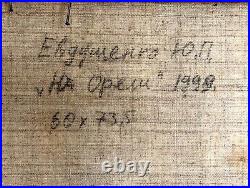 Евдушенко Ю.П
"На Орели" 1992
60 x 73,5